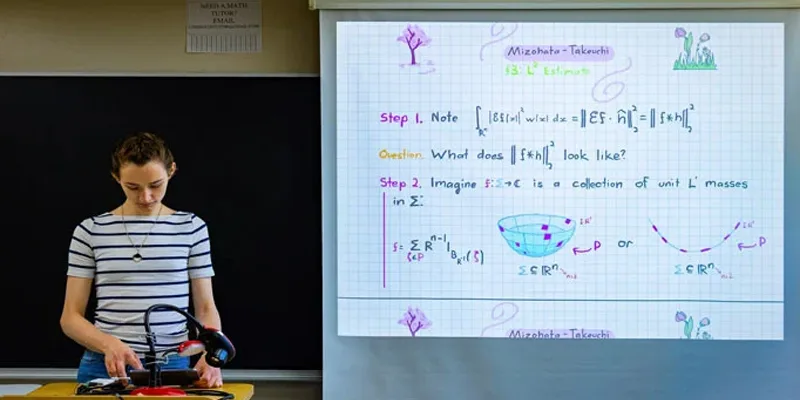 NEED A MATH
TUTOR?
EMAIL
Mizohata-Takeuchi
§3: L² Estimate
Step 1. Note ∫_{R^n} |Ef(x)|² w(x) dx = ‖Ef · ĥ‖₂² = ‖f*h‖₂²
Question: What does ‖f*h‖₂² look like?
Step 2. Imagine f: Σ→ℂ is a collection of unit L¹ masses
in Σ:
f = Σ_{ξ∈P} R^{n-1} 1_{B_{R⁻¹}(ξ)}
P or P
Σ ⊆ ℝⁿ Σ ⊆ ℝⁿ
Mizohata-Takeuchi